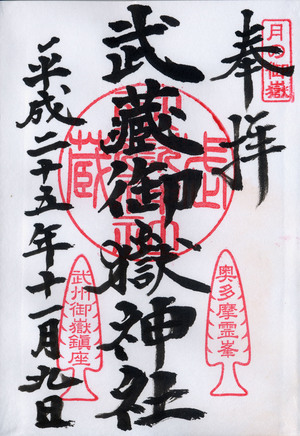 月の御嶽
奉拝
武蔵御嶽神社
奥多摩霊峯
武州御嶽鎮座
平成二十五年十一月九日